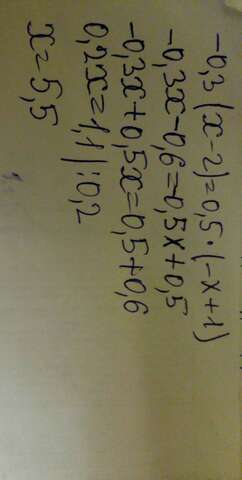 -0,3(x-2)=0,5·(-x+1)
-0,3x-0,6=0,5x+0,5
-0,3x+0,5x=0,5+0,6
0,2x=1,1|:0,2
x=5,5